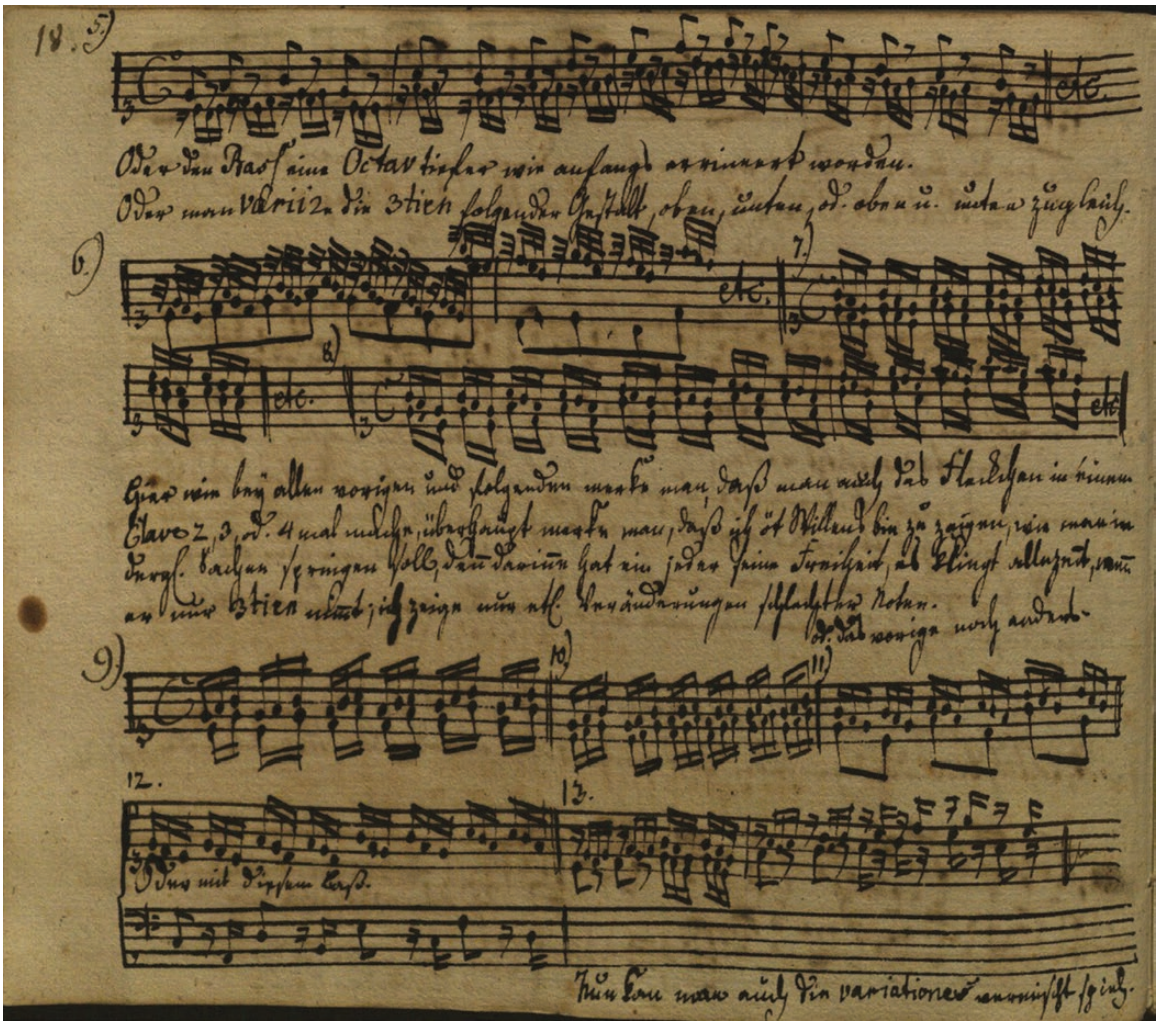 18. 5.)
etc.
Oder den Bass eine Octav tiefer wie anfangs errinnert worden.
Oder man variire die 3tien folgender Gestalt, oben, unten, od. oben u. unten zugleich.
6.) 7.)
etc.
8)
etc. etc
Hier wie bey allen vorigen und folgenden merke man, daß man auch das Fleckchen in einem
Clave 2, 3, od. 4 mal mache, überhaupt merke man, daß ich öt Willens bin zu zeigen, wie man in
dergl. Sachen springen soll, den darinne hat ein jeder seine Freiheit, es klingt allezeit, wenn
er nur 3tien nimt; ich zeige nur etl. Veränderungen schlechter Noten.
od. das vorige noch anders.
9.) 10.) 11)
12. 13.
Oder mit diesem Baß.
Nun kan man auch die variationes vermischt spiel.